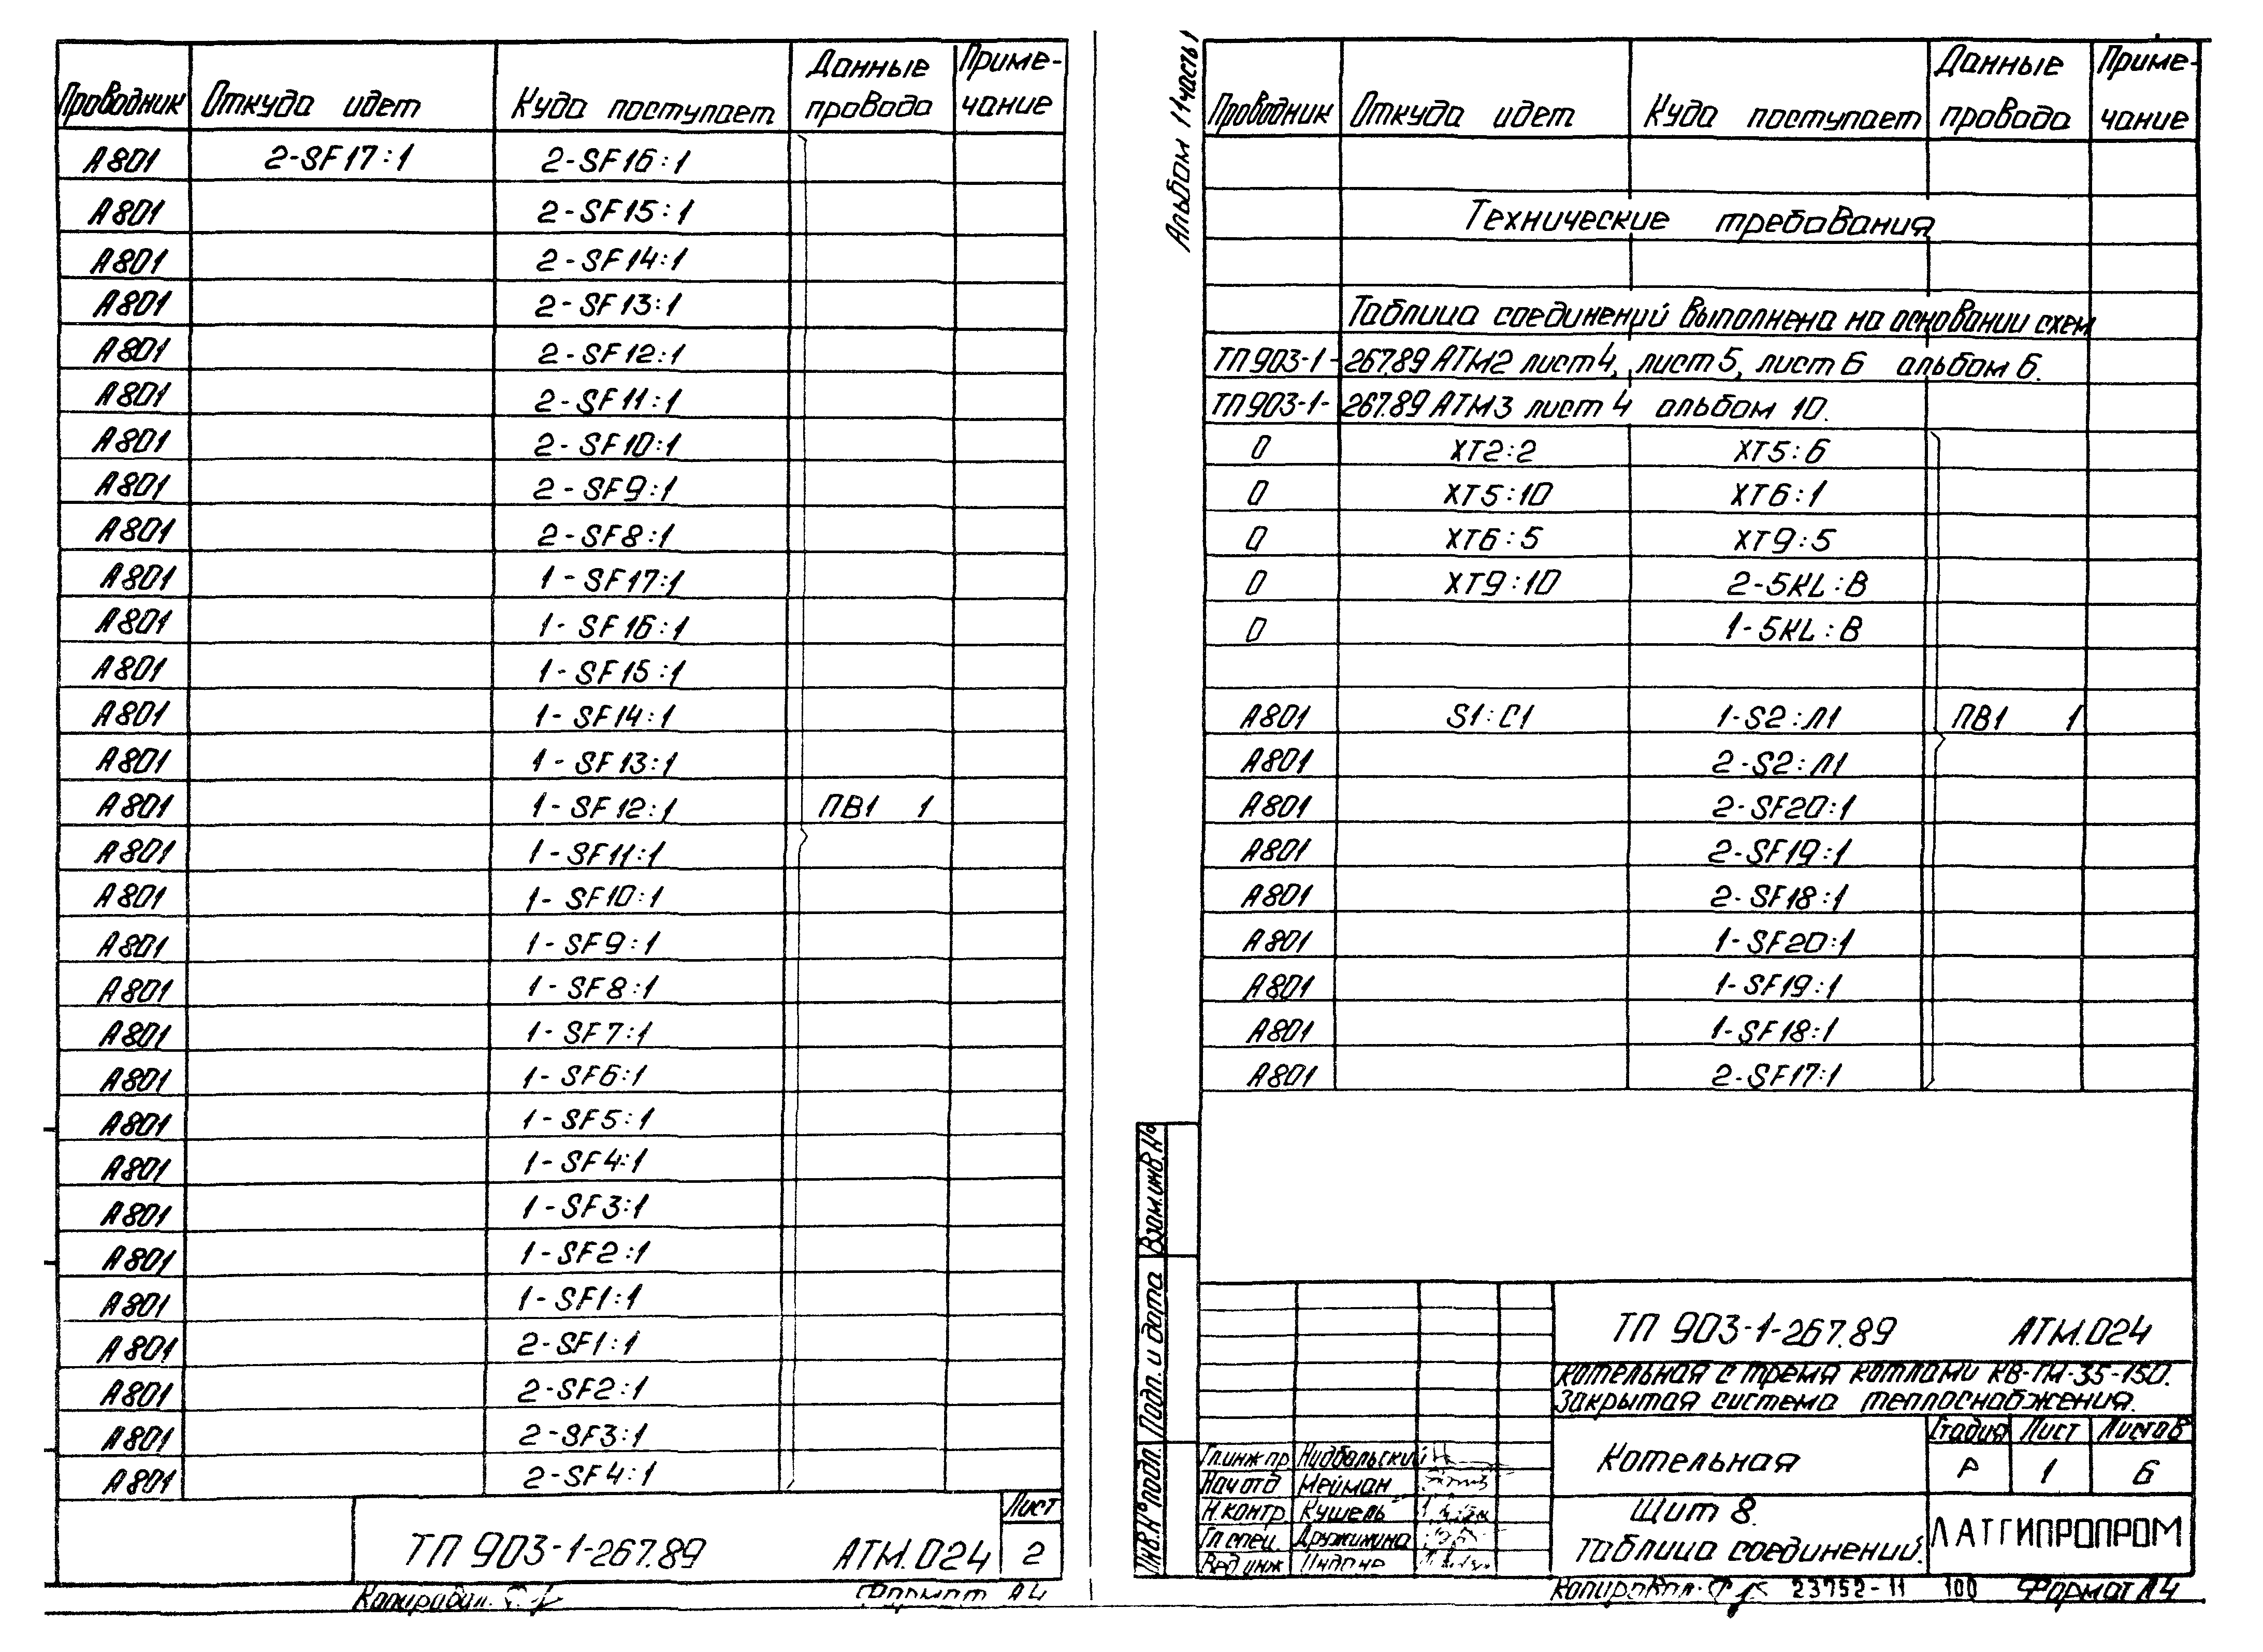 Проводник Откуда идет Куда поступает Данные провода Примечание
А801 2-SF17:1 2-SF16:1
А801 2-SF15:1
А801 2-SF14:1
А801 2-SF13:1
А801 2-SF12:1
А801 2-SF11:1
А801 2-SF10:1
А801 2-SF9:1
А801 2-SF8:1
А801 1-SF17:1
А801 1-SF16:1
А801 1-SF15:1
А801 1-SF14:1
А801 1-SF13:1
А801 1-SF12:1 ПВ1 1
А801 1-SF11:1
А801 1-SF10:1
А801 1-SF9:1
А801 1-SF8:1
А801 1-SF7:1
А801 1-SF6:1
А801 1-SF5:1
А801 1-SF4:1
А801 1-SF3:1
А801 1-SF2:1
А801 1-SF1:1
А801 2-SF1:1
А801 2-SF2:1
А801 2-SF3:1
А801 2-SF4:1
ТП 903-1-267.89 АТМ.024
Лист
2
Формат А4
Альбом 11 часть 1
Проводник Откуда идет Куда поступает Данные провода Примечание
Технические требования
Таблица соединений выполнена на основании схем
ТП 903-1-267.89 АТМ2 лист 4, лист 5, лист 6 альбом 6.
ТП 903-1-267.89 АТМ3 лист 4 альбом 10.
0 ХТ2:2 ХТ5:6
0 ХТ5:10 ХТ6:1
0 ХТ6:5 ХТ9:5
0 ХТ9:10 2-5KL:В
0 1-5KL:В
А801 S1:С1 1-S2:Л1 ПВ1 1
А801 2-S2:Л1
А801 2-SF20:1
А801 2-SF19:1
А801 2-SF18:1
А801 1-SF20:1
А801 1-SF19:1
А801 1-SF18:1
А801 2-SF17:1
Взам.инв.№
Подп. и дата
Инв.№ подл.
ТП 903-1-267.89 АТМ.024
Котельная с тремя котлами КВ-ГМ-35-150.
Закрытая система теплоснабжения.
Гл.инж.пр. Нидбальский
Нач.отд Мейман
Н.контр. Кушель
Гл.спец. Дружинина
Вед.инж
Котельная
Стадия Лист Листов
Р 1 6
Щит 8.
Таблица соединений.
ЛАТГИПРОПРОМ
Копировал: 23752-11 100 Формат А4